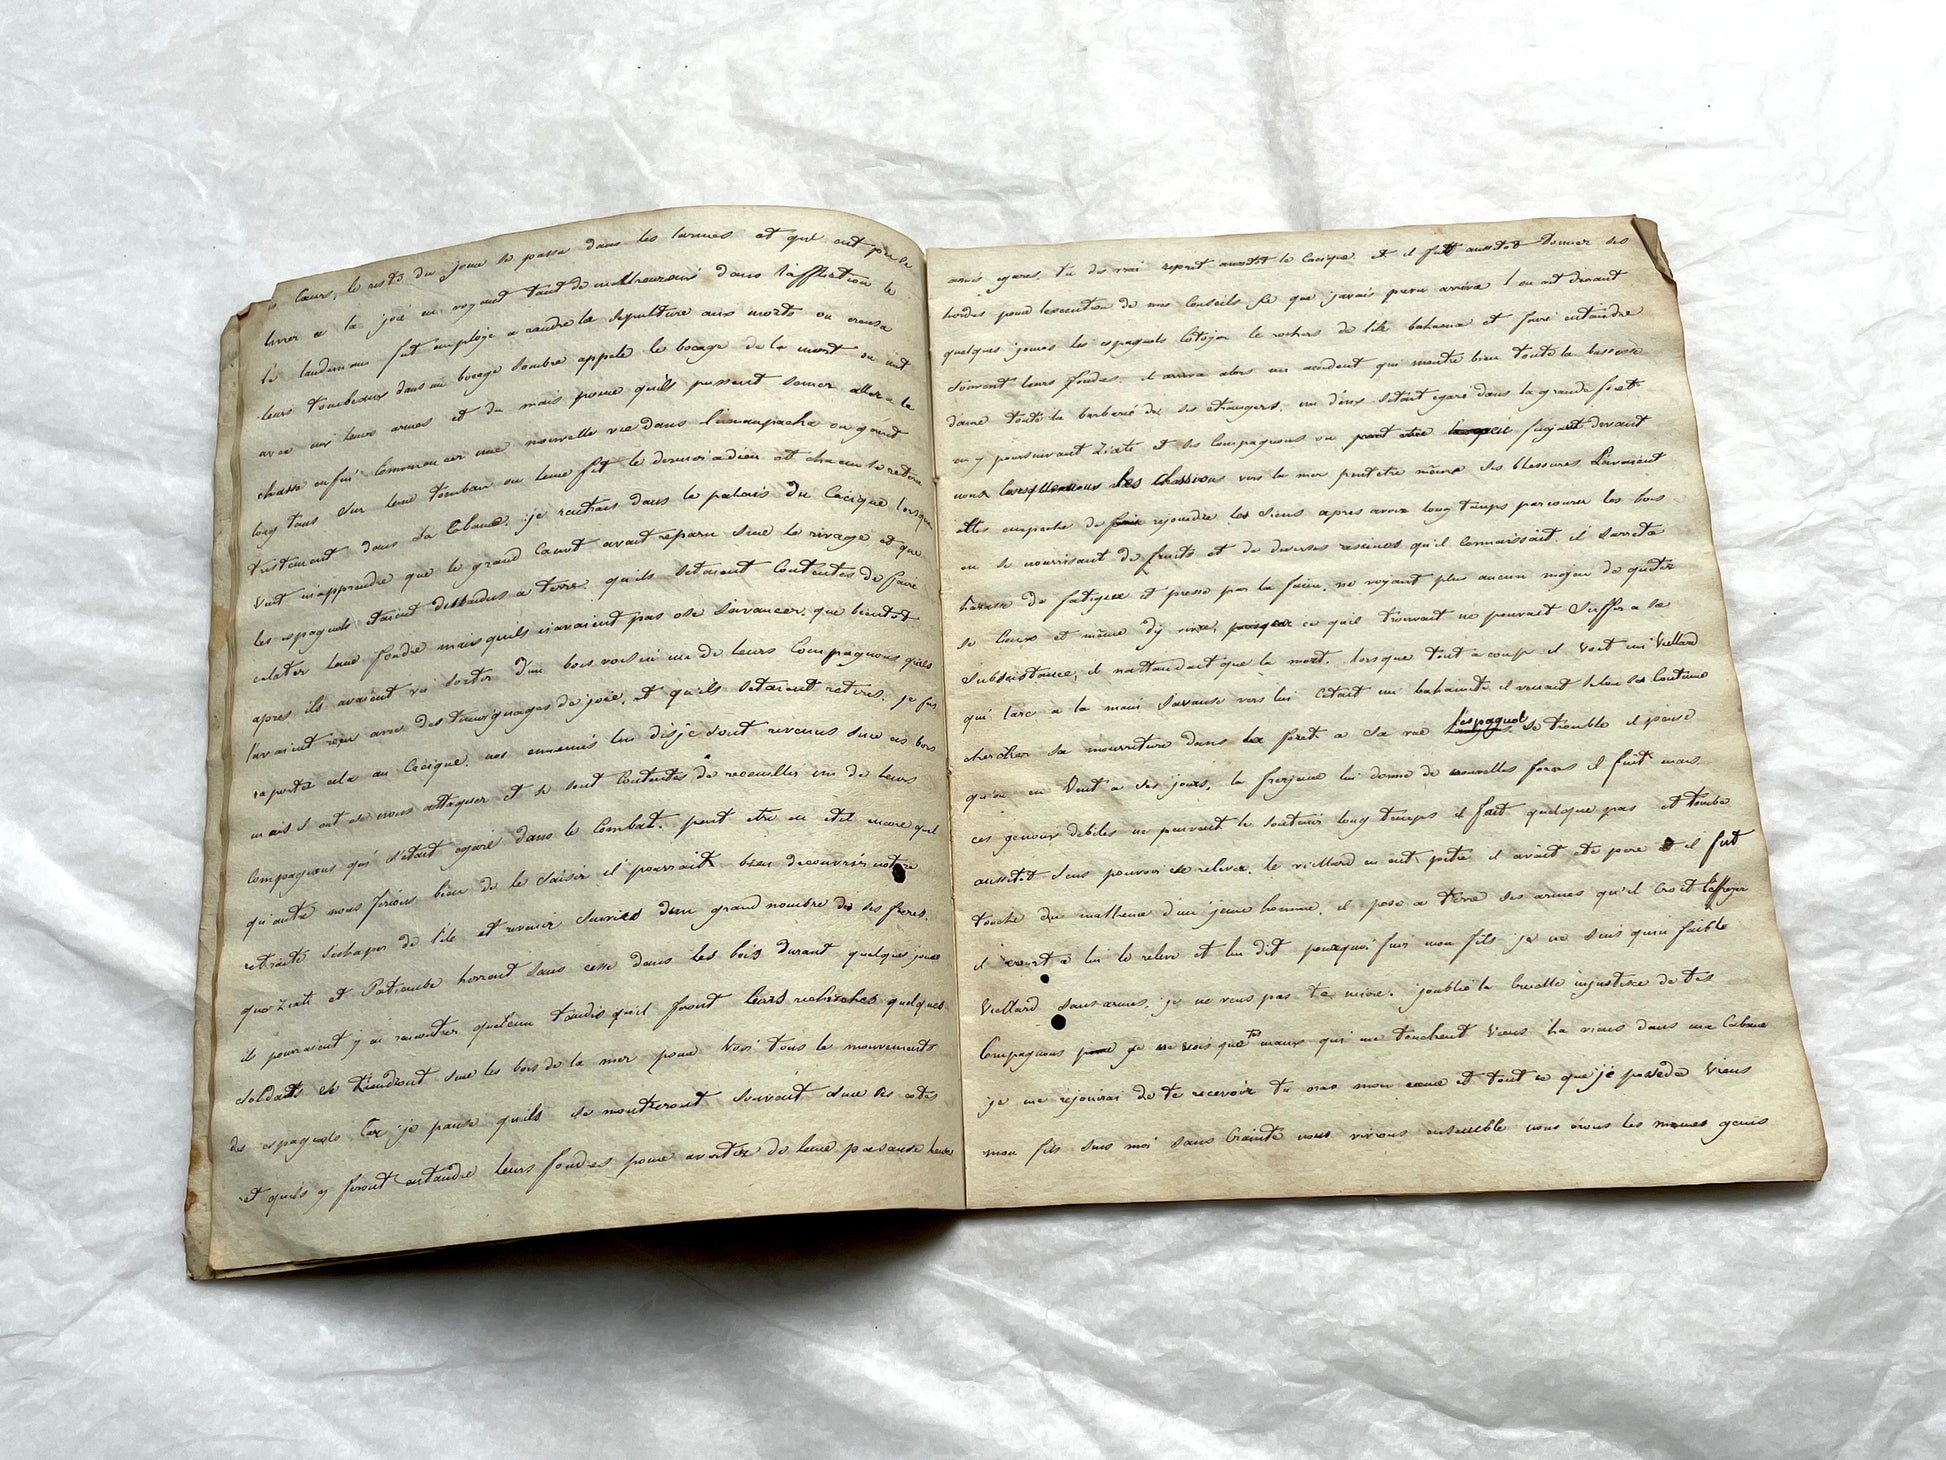 Cœurs, le reste du jour se passa dans les larmes et qui eut pu se
livrer a la joie en voyant tant de malheureux dans l'affliction le
le landemain fut employe a randre la sepulture aux morts on creusa
leurs tombeaux dans un bocage sombre appele le bocage de la mort on mit
avec eux leurs armes et du mais pour qu'ils pussent semer aller a la
chasse enfin commencer une nouvelle vie dans on gemit
long tems sur leur tombeau on leur fit le dernier adieu et chacun se retira
tristement dans sa Cabane. je rentrais dans le palais du Cacique lorsqu'on
vint m'apprendre que le grand Canot avait reparu sur le rivage et que
les espagnols etaient debandus a terre. qu'ils setaient Contentes de faire
eclater leur foudre mais quils n'avaient pas ose savancer, que bientot
apres ils avaient vu sortir d'un bois voisin un de leurs Compagnons quils
l'avaient reçu avec des temoignages de joie, et qu'ils setaient retires. je fus
raporter cela au Cacique. nos ennemis lui disje sont revenus sur ces bors
mais il ont ose nous attaquer et se sont Contentes de receuillir un de leurs
Compagnons qui s'etait egare dans le Combat. peut etre en etil encore quel
qu'autre nous ferions bien de le saisir il pourrait bien decouvrir notre
retraite sechaper de l'ile et revenir suivies d'un grand nombre de ses freres.
que Ziati et iront sans cesse dans les bois durant quelques jours
ils pouraient y en rancontrer quelcun tandis qu'il feront leurs recherches quelques
soldats se tiendront sur les bors de la mer pour voir tous le mouvements
des espagnols Car je panse quils se montreront souvant sur les cotes
et quils y feront entandre leurs foudres pour avertir de leur presance leurs
amis egares. tu dis vrai reprit aussitot le Cacique. et il fut aussitot donner des
hordes pour lexecution de mes Conseils Ce que javais prevu arriva l on ait durant
quelques jours les espagnols Cotoyer le rochers de l'ile bahama et faire entandre
souvant leurs foudres. il arriva alors un accident qui montre bien toute la bassesse
dame toute la barberie de ses etrangers. un d'eux setait egare dans la grande foret
en y poursuivant Ziati et ses Compagnons ou peut etre fuyant devant
nous lorsque nous les chassions vers la mer peut etre même ses blessures l'avaient
elles empeche de rejoindre les siens apres avoir long temps parcourir les bois
en se nourrissant de fruits et de diverses racines qu'il Connaissait. il sarrete
harasse de fatigue et presse par la faim. ne voyant plus aucun moyen de quiter
se lieux et même d'y vivre, puisque ce quil trouvait ne pouvait suffir a sa
subsistance, il nattandait que la mort. lorsque tout a coup il voit un viellard
qui larc a la main savanse vers lui Cetait un bahamite il venait selon sa Coutume
chercher sa nourriture dans la foret a sa vue l'espagnol se trouble il panse
qu'on en veut a ses jours, la frayeur lui donne de nouvelles forces il fuit mais
ces genoux debiles ne peuvent le soutenir long temps il fait quelque pas et tombe
aussitot sans pouvoir se relever. le viellard en eut pitie il avait ete pere et il fut
touche du malheur d'un jeune homme, il pose a terre ses armes qu'il croit l'effrayer
il court a lui le releve et lui dit pourquoi fuir mon fils je ne suis qu'un faible
viellard sans armes, je ne veux pas te nuire. joublie la cruelle injustice de tes
Compagnons je ne vois que tes maux qui me touchent viens ha viens dans ma Cabane
je me rejouirai de te recevoir tu auras mon cœur et tout ce que je possede viens
mon fils suis moi sans Crainte nous vivrons ensemble nous irons les mêmes genis